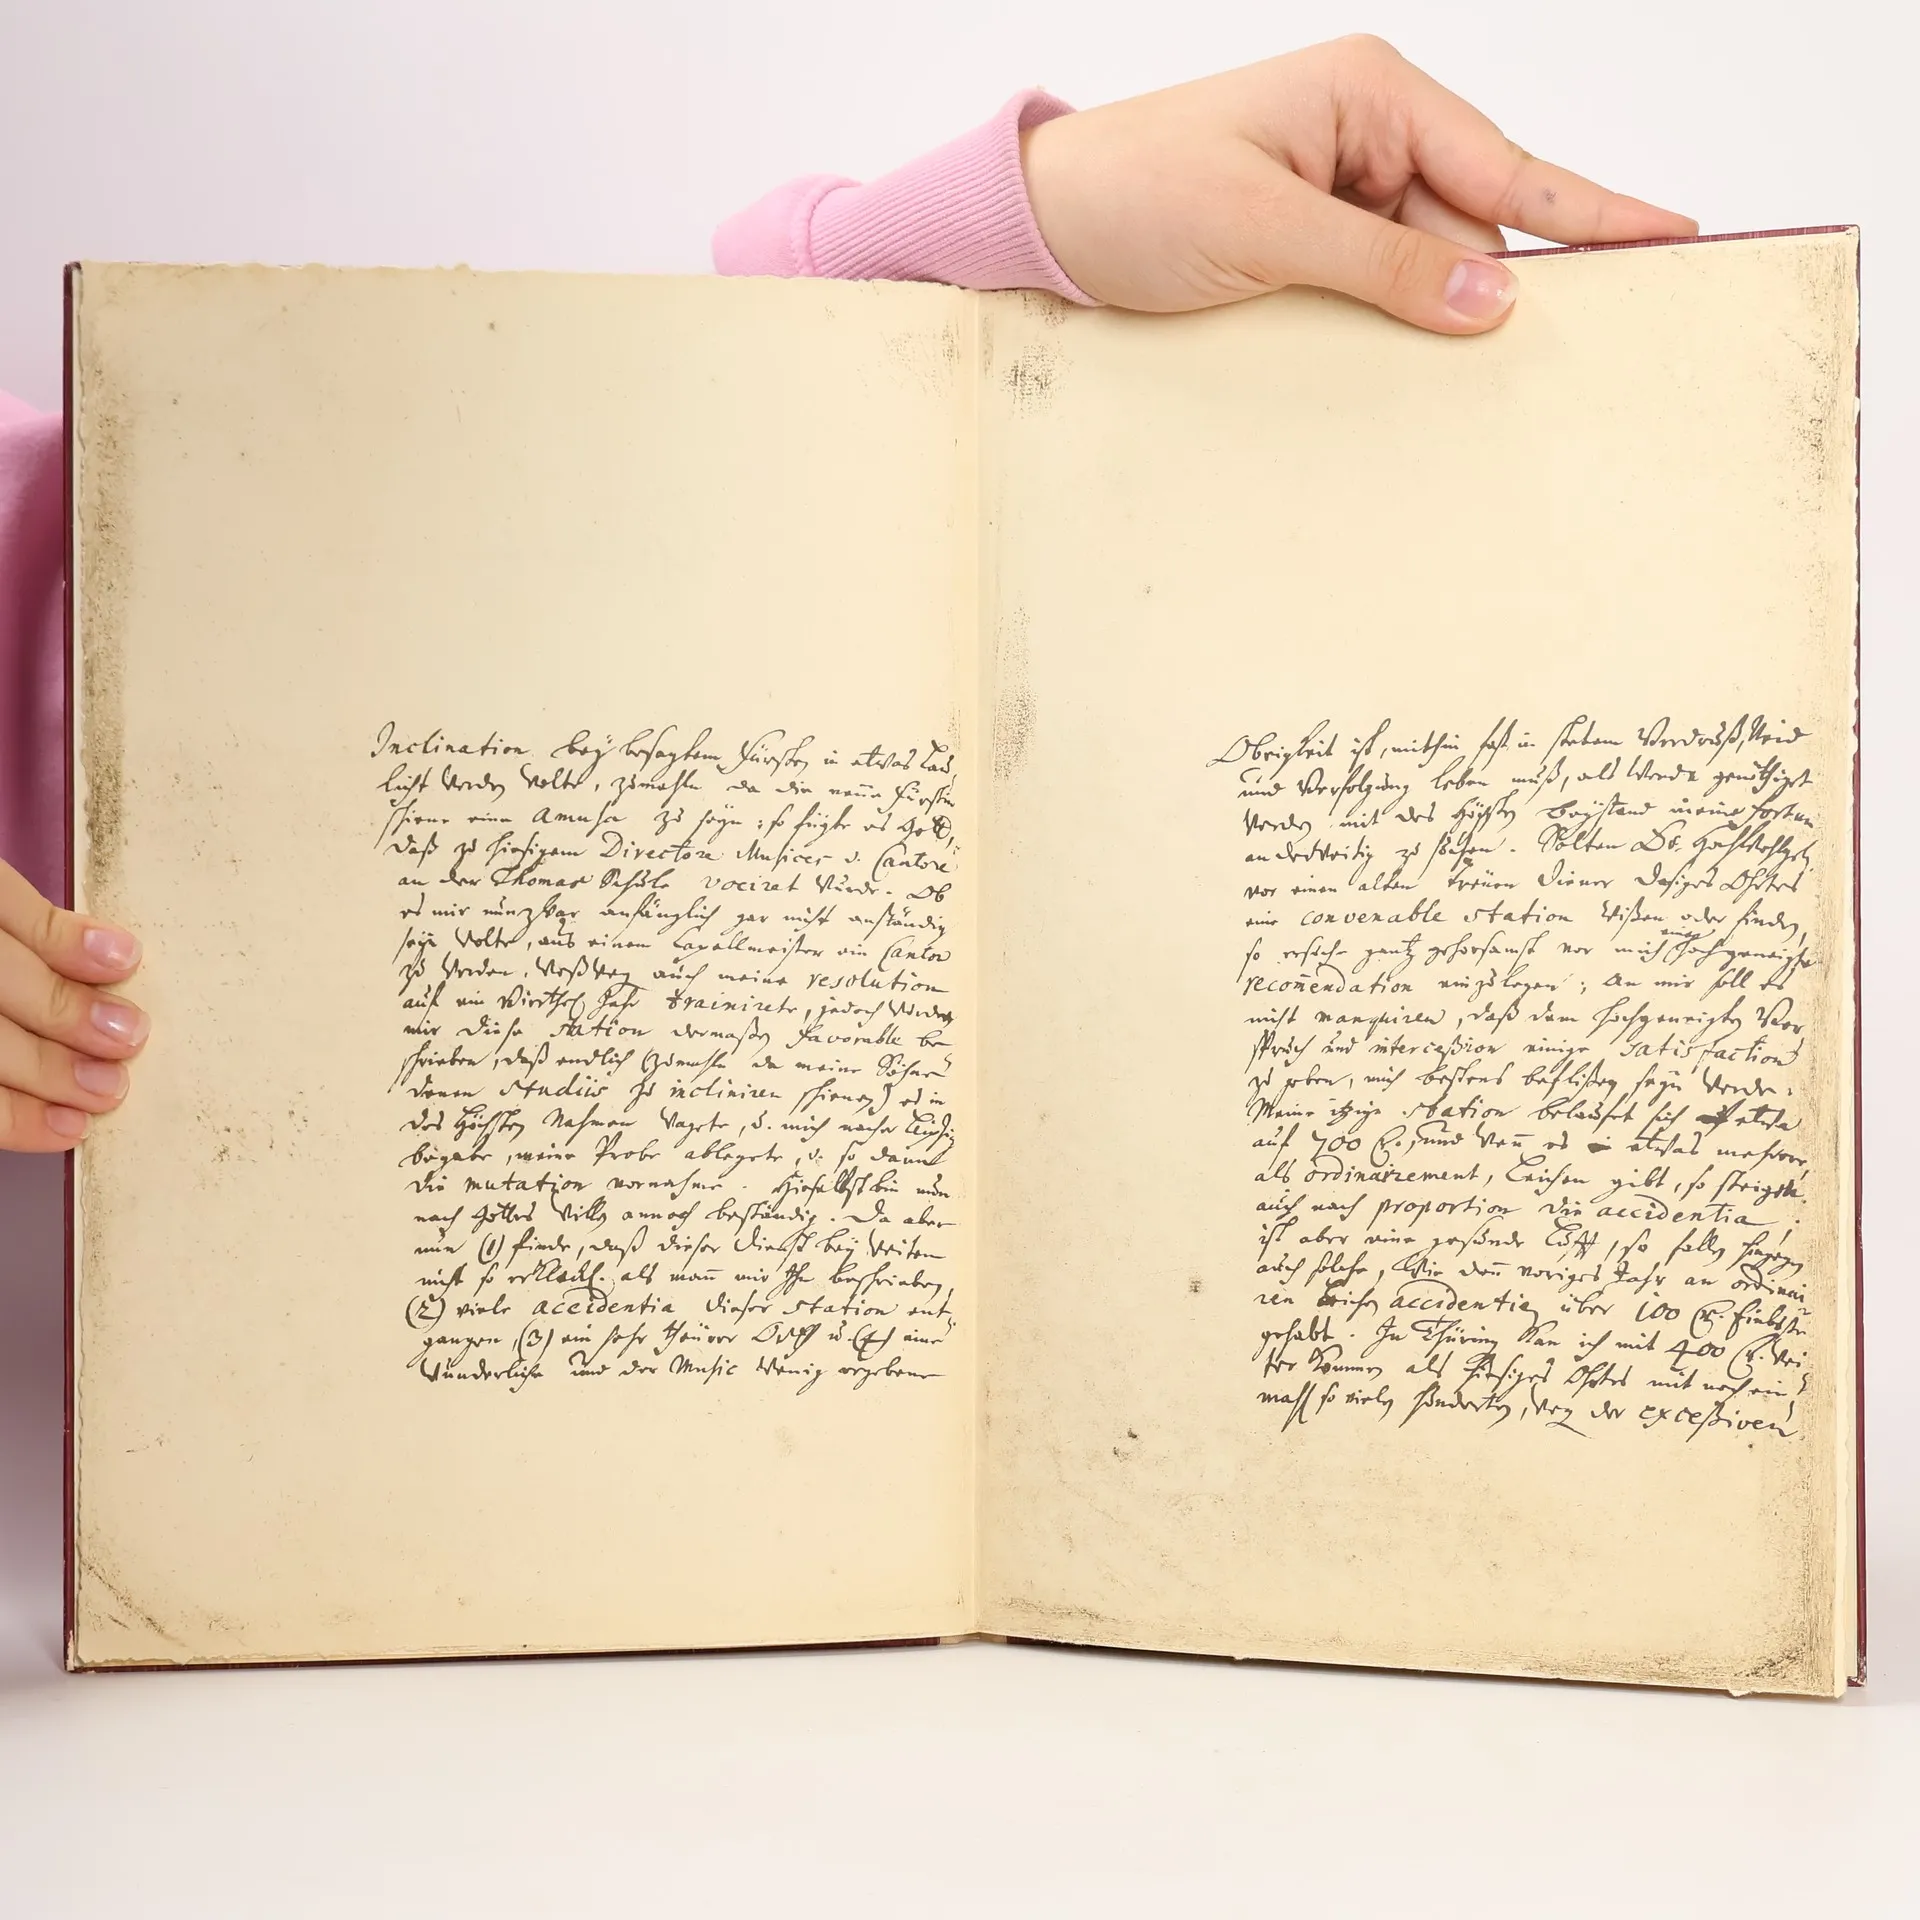 Inclination bey besagtem Fürsten in etwas lau
licht werden wolte, zumahln da die neüe Fürstin
schiene eine Amusa zu seyn: so fügte es Gott,
daß zu hiesigem Directore Musices u. Cantore
an der Thomas Schule vociret wurde. Ob
es mir nun zwar anfänglich gar nicht anständig
seyn wolte, aus einem Capellmeister ein Cantor
zu werden, weßweg auch meine resolution
auf ein vierthel Jahr trainirete, jedoch wurde
mir diese station dermaßen favorable be
schrieben, daß endlich (zumahln da meine Söhne
denen studiis zu incliniren schienen) es in
des Höchsten Nahmen wagete, u. mich nacher Leipzig
begabe, meine Probe ablegete, u. so dann
die mutation vornahme. Hieselbst bin nun
nach Gottes Willen annoch beständig. Da aber
nun (1) finde, daß dieser dienst bey weiten
nicht so erklecklich als mann mir Ihn beschrieben,
(2) viele accidentia dieser station ent-
gangen, (3) ein sehr theürer Orth u. (4) eine
wunderliche und der Music wenig ergebene
Obrigkeit ist, mithin fast in stetem Verdruß, Neid
und Verfolgung leben muß, als werde genöthiget
werden mit des Höchsten Beystand meine Fortun
anderweitig zu suchen. Solten Eu. Hochwohlgeb.
vor einen alten treüen diener dasiges Ohrtes
eine convenable station wißen oder finden,
so ersuche gantz gehorsamst vor mich eine hochgeneigte
recommendation einzulegen; An mir soll es
nicht manquiren, daß dem hochgeneigten Vor
spruch und interceßion einige satisfaction
zu geben, mich bestens beflißen seyn werde.
Meine itzige station belaufet sich etwa
auf 700 rthl., und wenn es etwas mehrere,
als ordinairement, Leichen gibt, so steigen
auch nach proportion die accidentia;
ist aber eine gesunde Lufft, so fallen hingegen
auch solche, wie denn voriges Jahr an ordinai
ren Leichen accidentien über 100 rthl. Einbuße
gehabt. In Thüringen kan ich mit 400 rthl. wei
ter kommen als hiesiges Ohrtes mit noch ein
mahl so vielen hunderten, weg der exceßiven